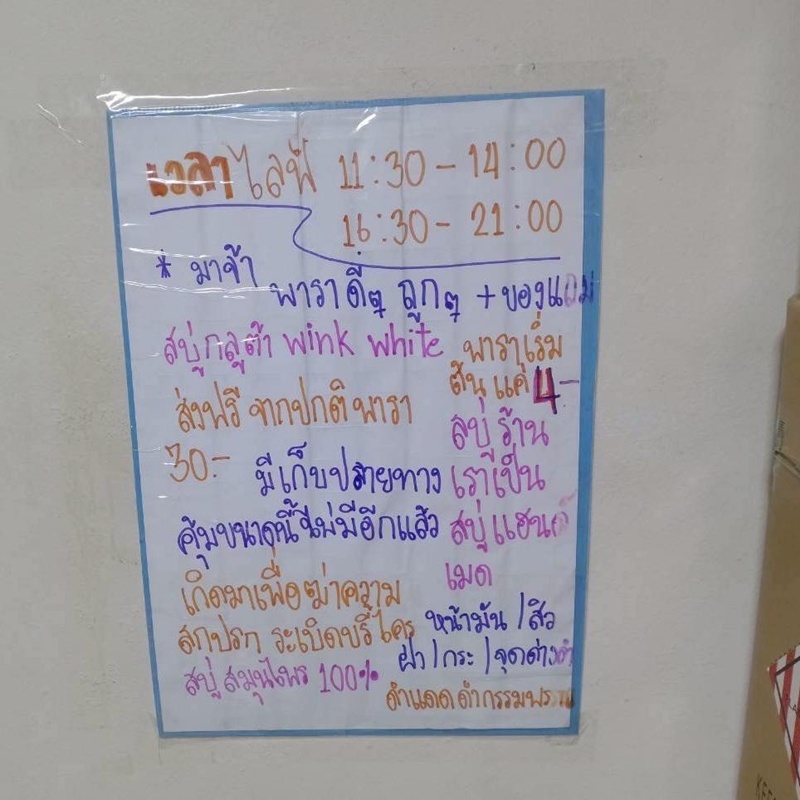 เวลาไลฟ์ 11:30 - 14:00
16:30 - 21:00
* มาจ้า พาราดีๆ ถูกๆ + ของแถม
สบู่กลูต้า wink white
ส่งฟรี จากปกติ พารา
30.-
มีเก็บปลายทาง
คุ้มขนาดนี้ไม่มีอีกแล้ว
เกิดมาเพื่อฆ่าความ
สกปรก ระเบิดขี้ไคร
สบู่ สมุนไพร 100%
พาราเริ่ม
ต้น แค่ 4.-
สบู่ ร้าน
เราเป็น
สบู่ แฮนด์
เมด
หน้ามัน / สิว
ฝ้า / กระ / จุดด่างดำ
ดำแดด ดำกรรมพันธุ์